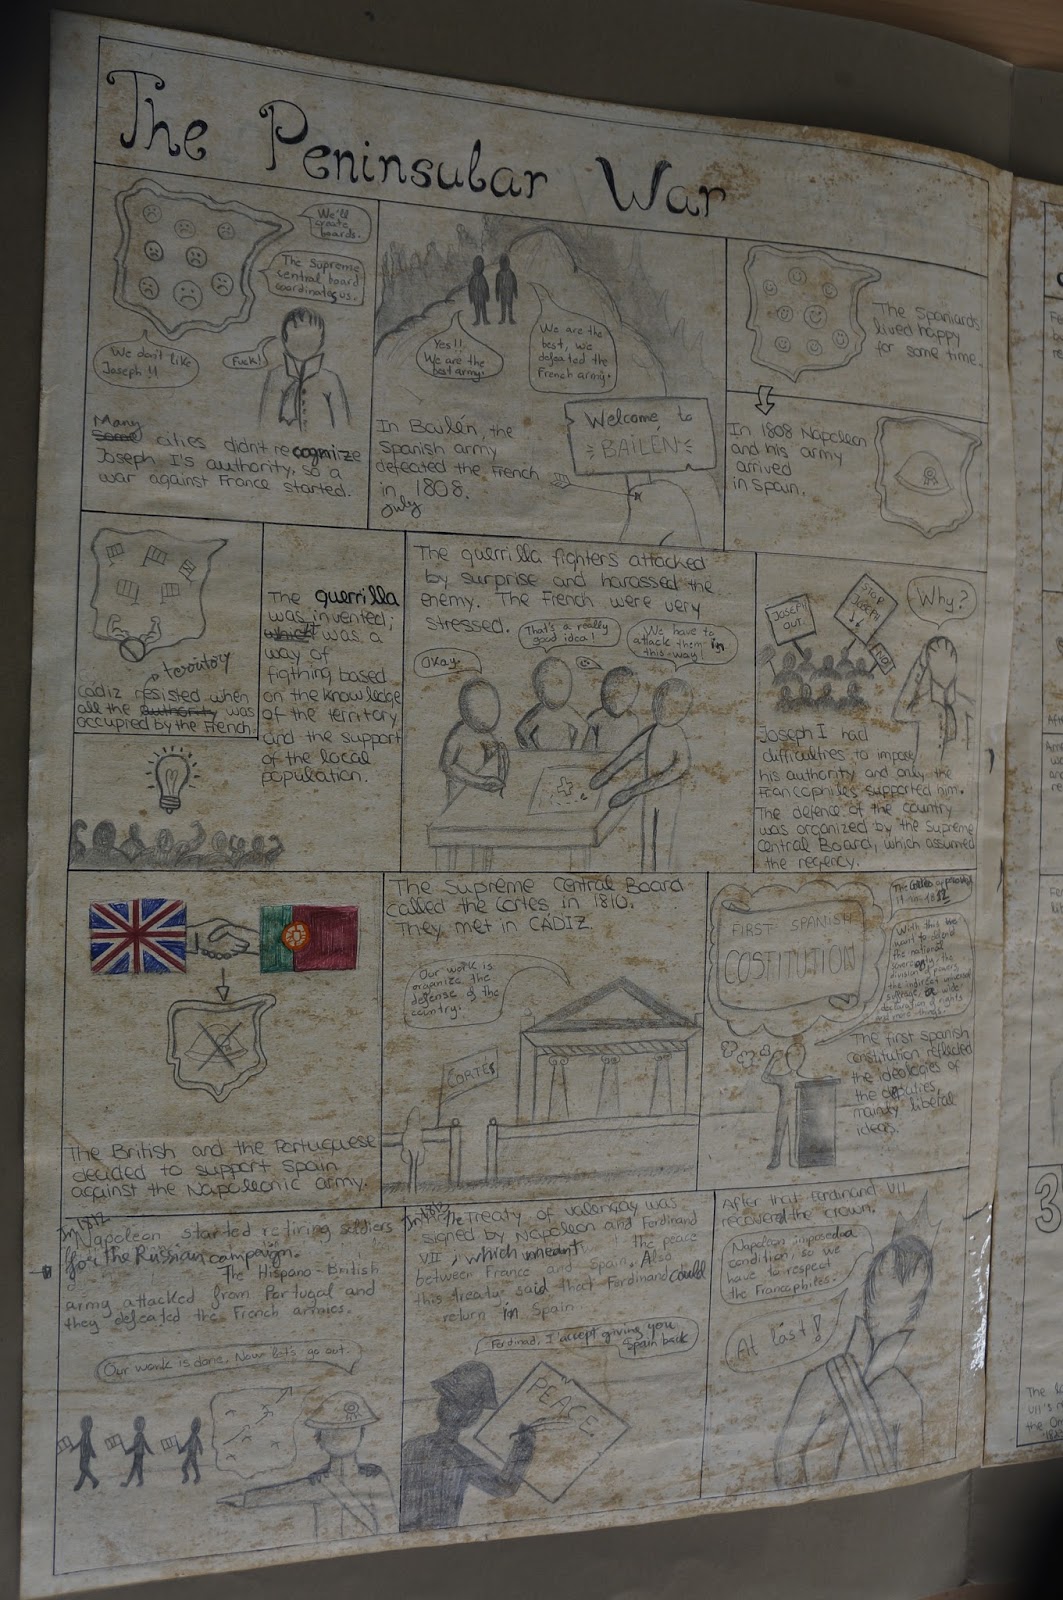 The Peninsular War
We'll
create
boards.
The Supreme
central board
coordinates us.
We don't like
Joseph !!
Fuck!
Many
Some cities didn't recognize
Joseph I's authority, so a
war against France started.
Yes!!
We are the
best army.
We are the
best, we
defeated the
French army.
Welcome to
BAILÉN
In Bailén, the
Spanish army
defeated the French
in 1808.
only
The Spaniards
lived happy
for some time.
In 1808 Napoleon
and his army
arrived
in Spain.
territory
Cádiz resisted when
all the authority was
occupied by the French.
The guerrilla
was invented;
which was a
way of
figthing based
on the knowledge
of the territory
and the support
of the local
population.
The guerrilla fighters attacked
by surprise and harassed the
enemy. The French were very
stressed.
Okay.
That's a really
good idea!
We have to
attack them in
this way!
JOSEPH
OUT
STOP
JOSEPH
!!
NO
Why?
Joseph I had
difficulties to impose
his authority and only the
Francophiles supported him.
The defence of the country
was organized by the Supreme
Central Board, which assumed
the regency.
The British and the Portuguese
decided to support Spain
against the Napoleonic army.
The Supreme Central Board
called the Cortes in 1810.
They met in CÁDIZ.
Our work is
organize the
defense of the
country.
CORTES
FIRST SPANISH
COSTITUTION
The Cortes approved
19 1812
With this we
want to defend
the national
sovereignty, the
division of powers,
the indirect universal
suffrage, a wide
declaration of rights
and more things.
The first spanish
constitution reflected
the ideologies of
the deputies,
mainly liberal
ideas.
In 1812
Napoleon started retiring soldiers
for the Russian campaign.
The Hispano-British
army attacked from Portugal and
they defeated the French armies.
Our work is done. Now let's go out.
The Treaty of Valençay was
signed by Napoleon and Ferdinand
VII, which meant the peace
between France and Spain. Also
this treaty said that Ferdinand could
return in Spain
Ferdinad, I accept giving you
Spain back
PEACE
After that Ferdinand VII
recovered the crown.
Napoleon imposed a
condition, so we
have to respect
the Francophiles.
At last!
3